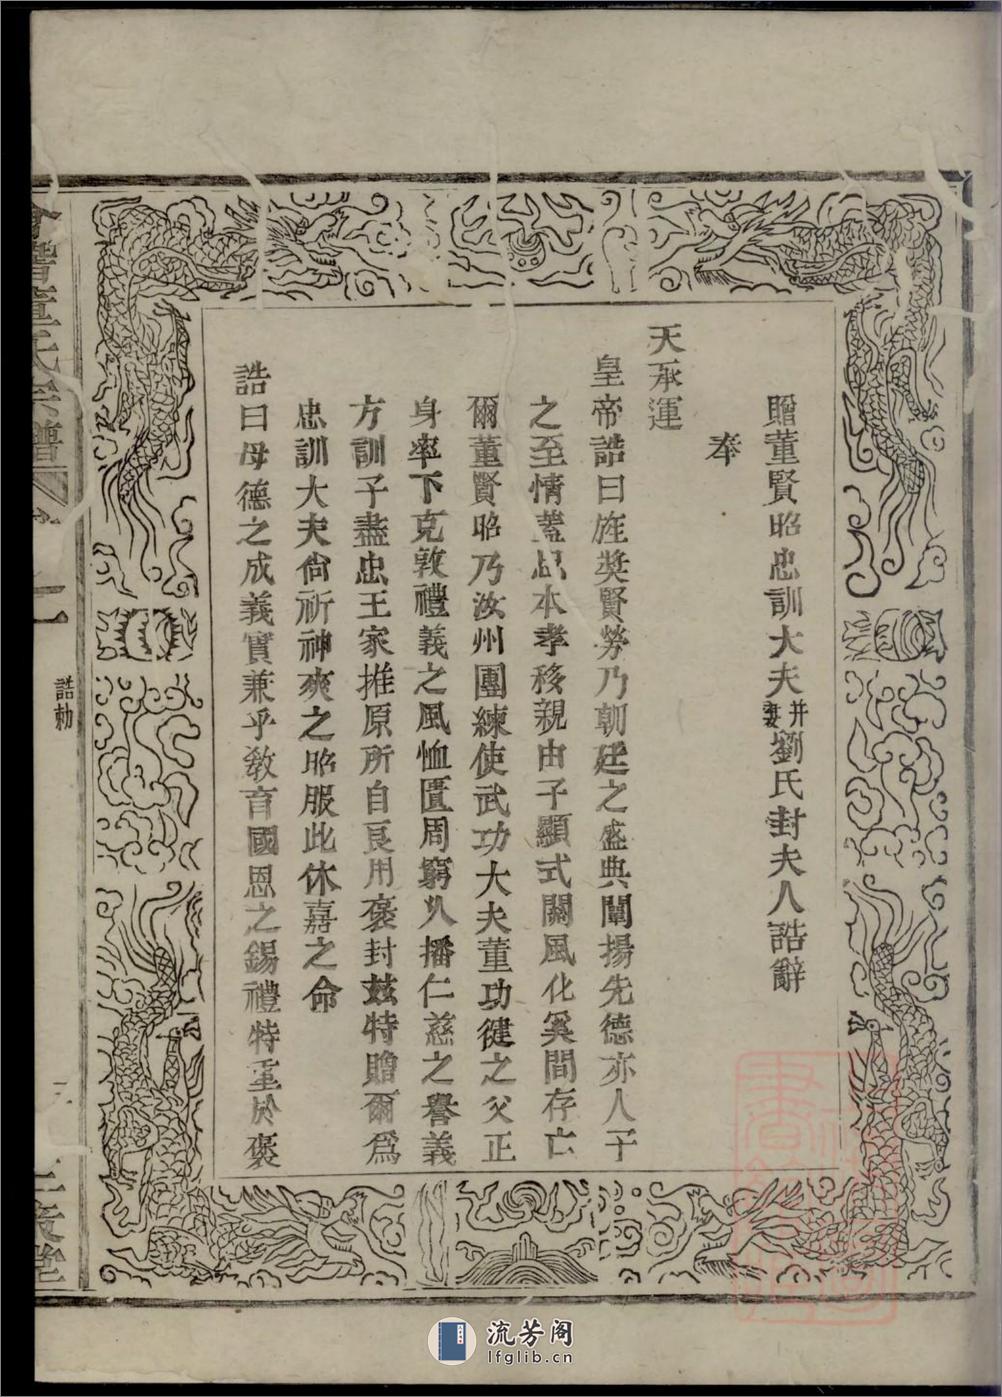 贈董賢昭忠訓大夫并妻劉氏封夫人誥辭
奉
天承運
皇帝誥曰旌奬賢勞乃朝廷之盛典闡揚先德亦人子
之至情蓋忠本孝移親由子顯式關風化奚間存亡
爾董賢昭乃汝州團練使武功大夫董功健之父正
身率下克敦禮義之風恤匱周窮久播仁慈之譽義
方訓子盡忠王家推原所自良用褒封茲特贈爾爲
忠訓大夫尙祈神爽之昭服此休嘉之命
誥曰母德之成義實兼乎敎育國恩之錫禮特重於褒
董氏宗譜
誥勅
三策堂
流芳阁
lfglib.cn